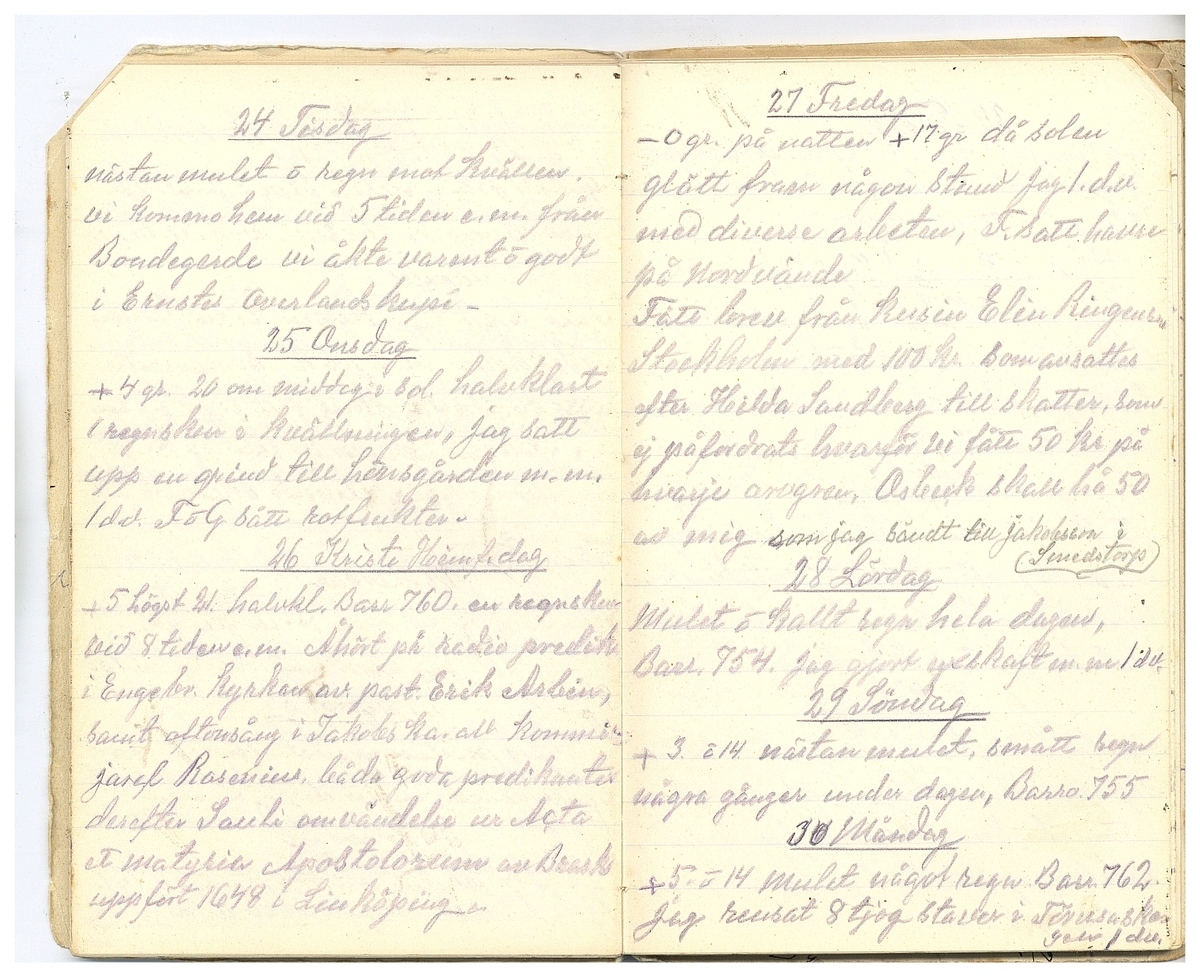 24 Tisdag
nästan mulet o regn mot kvällen.
vi kommo hem vid 5 tiden e.m. från
Bondegerde vi åkte varmt o godt
i Ernsts Overlands kupé –
25 Onsdag
+ 4 gr. 20 om middag i sol. halvklart
1 regnskur i kvällningen, jag satt
upp en grind till hönsgården m.m.
1 dv. F o G sått rotfrukter.
26 Kristi Himf. dag
+ 5 högst 21. halvkl. Barr 760. en regnskur
vid 8 tiden e.m. Åhört på radio predik
i Engelbr. Kyrkan av past. Erik Arbin,
samt aftonsång i Jakobs ka. all Kommi-
Rosenius, båda goda predikanter
derefter Sauli omvändelse ur Acta
et matyria Apostolorum av Brasks
uppfört 1648 i Linköping.
27 Fredag
– 0 gr. på natten + 17 gr då solen
glått fram någon stund jag 1. d.v.
med diverse arbeten, F. satt havre
på Nordvände
Fått brev från Kusin Elin Ringens
Stockholm med 100 kr. som avsattes
efter Hilda Sandberg till skatter, som
ej påfordrats hvarför vi fått 50 kr på
hvarje arvgren, Osbeck skall hå 50
av mig som jag sändt till Jakobsson i
(Smedstorp)
28 Lördag
Mulet o kallt regn hela dagen,
Barr. 754. jag gjort yxskaft m.m 1 dv.
29 Söndag
+ 3. o 14. nästan mulet, smått regn
några gånger under dagen, Barro. 755
30 Måndag
+ 5. o 14 mulet något regn Barr. 762.
jag rensat 8 tjog stavar i
1 dv.